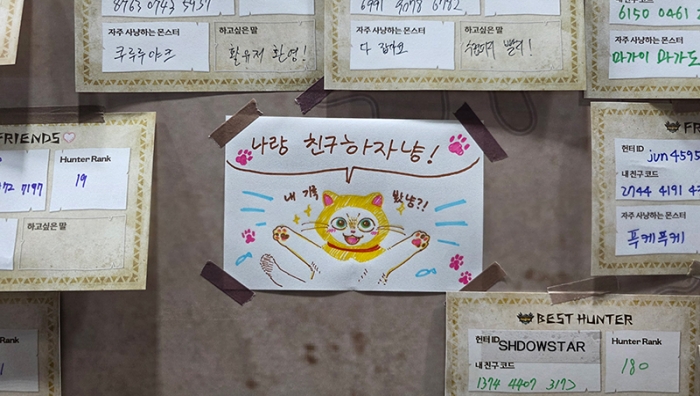 8763 0743 5937
자주 사냥하는 몬스터
쿠루루야크
하고싶은 말
활유저 환영!
자주 사냥하는 몬스터
다 잡아요
하고싶은 말
내 친구 코드
6150 0461
자주 사냥하는 몬스터
마가이 마가도
FRIENDS
Hunter Rank
19
7197
하고싶은 말
나랑 친구하자냥!
내 기록 봤냥?!
헌터 ID
jun4595
내 친구 코드
2744 4191
자주 사냥하는 몬스터
푸케푸케
Rank
BEST HUNTER
헌터 ID
SHDOWSTAR
Hunter Rank
180
내 친구 코드
1374 4407